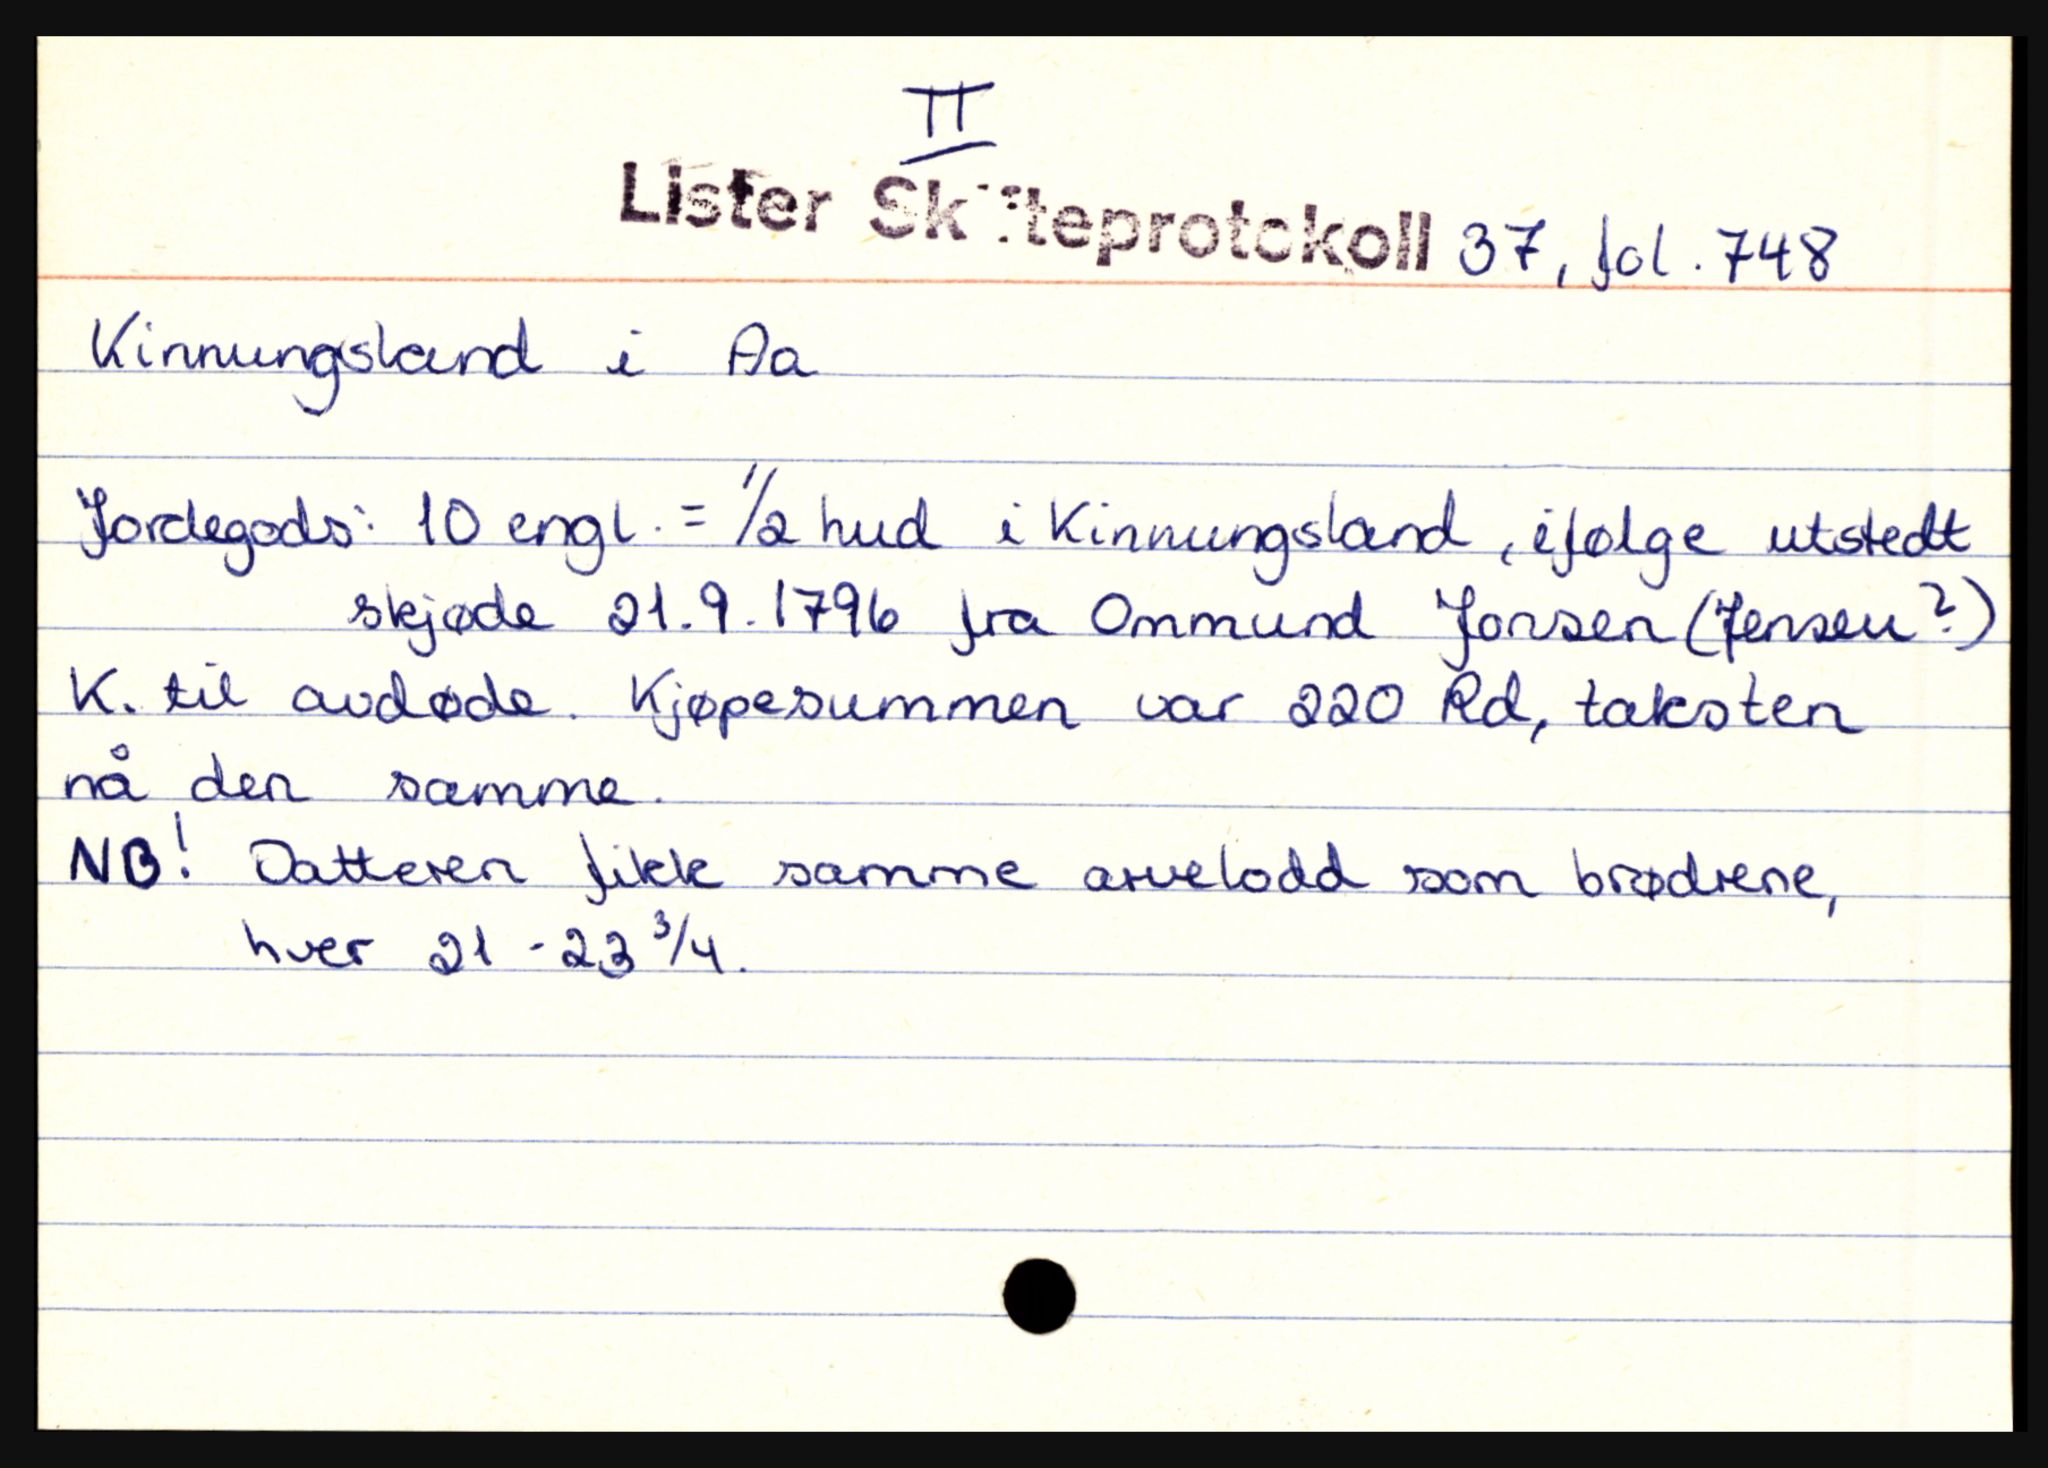 II
Lister Skifteprotokoll 37, fol. 748
Kinnungsland i Aa
Jordegods: 10 engl. = 1/2 hud i Kinnungsland, ifølge utstedt
skjøde 21.9.1796 fra Ommund Jonsen (Jensen?)
K. til avdøde. Kjøpesummen var 220 Rd, taksten
nå den samme.
NB! Datteren fikk samme arvelodd som brødrene,
hver 21 - 23 3/4.